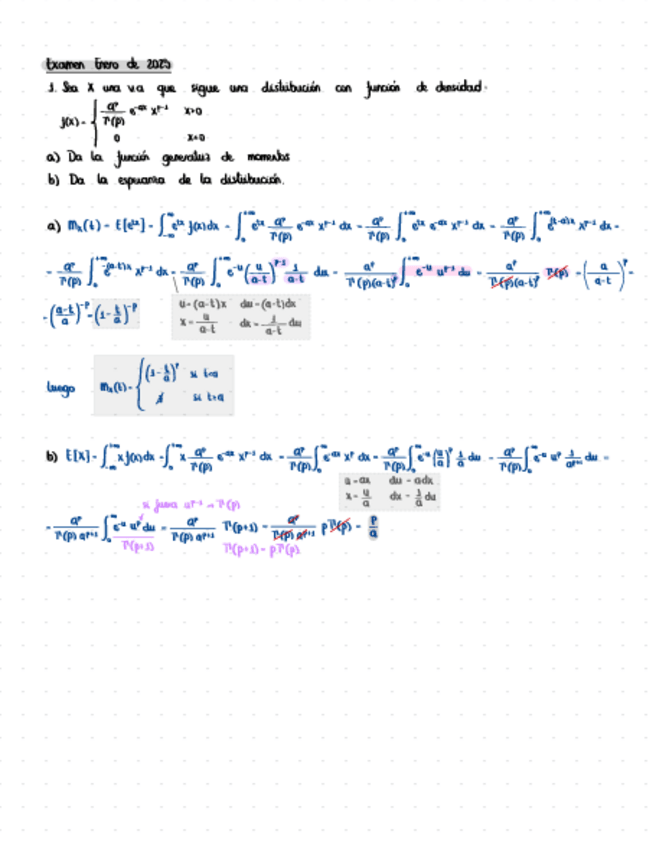 Examen Enero de 2025
1. Sea X una v.a que sigue una distribución con función de densidad:
f(x) = { a^p/Γ(p) e^{-ax} x^{p-1} x>0
0 x≤0
a) Da la función generatriz de momentos
b) Da la esperanza de la distribución.
a) m_x(t) = E[e^{tx}] = ∫_{-∞}^{+∞} e^{tx} f(x) dx = ∫_0^{+∞} e^{tx} a^p/Γ(p) e^{-ax} x^{p-1} dx = a^p/Γ(p) ∫_0^{+∞} e^{tx} e^{-ax} x^{p-1} dx = a^p/Γ(p) ∫_0^{+∞} e^{(t-a)x} x^{p-1} dx =
= a^p/Γ(p) ∫_0^{+∞} e^{-(a-t)x} x^{p-1} dx = a^p/Γ(p) ∫_0^{+∞} e^{-u} (u/(a-t))^{p-1} 1/(a-t) du = a^p/(Γ(p)(a-t)^p) ∫_0^{+∞} e^{-u} u^{p-1} du = a^p/(Γ(p)(a-t)^p) Γ(p) = (a/(a-t))^p =
= ((a-t)/a)^{-p} = (1 - t/a)^{-p}
u = (a-t)x du = (a-t)dx
x = u/(a-t) dx = 1/(a-t) du
luego m_x(t) = { (1 - t/a)^{-p} si t<a
∄ si t≥a
b) E[X] = ∫_{-∞}^{+∞} x f(x) dx = ∫_0^{+∞} x a^p/Γ(p) e^{-ax} x^{p-1} dx = a^p/Γ(p) ∫_0^{+∞} e^{-ax} x^p dx = a^p/Γ(p) ∫_0^{+∞} e^{-u} (u/a)^p 1/a du = a^p/Γ(p) ∫_0^{+∞} e^{-u} u^p 1/a^{p+1} du =
u = ax du = adx
x = u/a dx = 1/a du
si fuera u^{p-1} → Γ(p)
= a^p/(Γ(p) a^{p+1}) ∫_0^{∞} e^{-u} u^p du = a^p/(Γ(p) a^{p+1}) Γ(p+1) = a^p/(Γ(p) a^{p+1}) p Γ(p) = p/a
Γ(p+1) Γ(p+1) = pΓ(p)